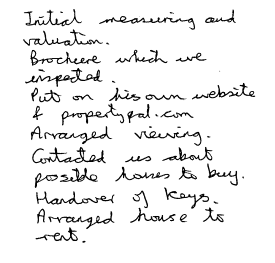 Initial measuring and
valuation.
Brochure which we
inspected.
Put on his own website
& propertypal.com
Arranged viewing.
Contacted us about
possible houses to buy.
Handover of keys.
Arranged house to
rent.